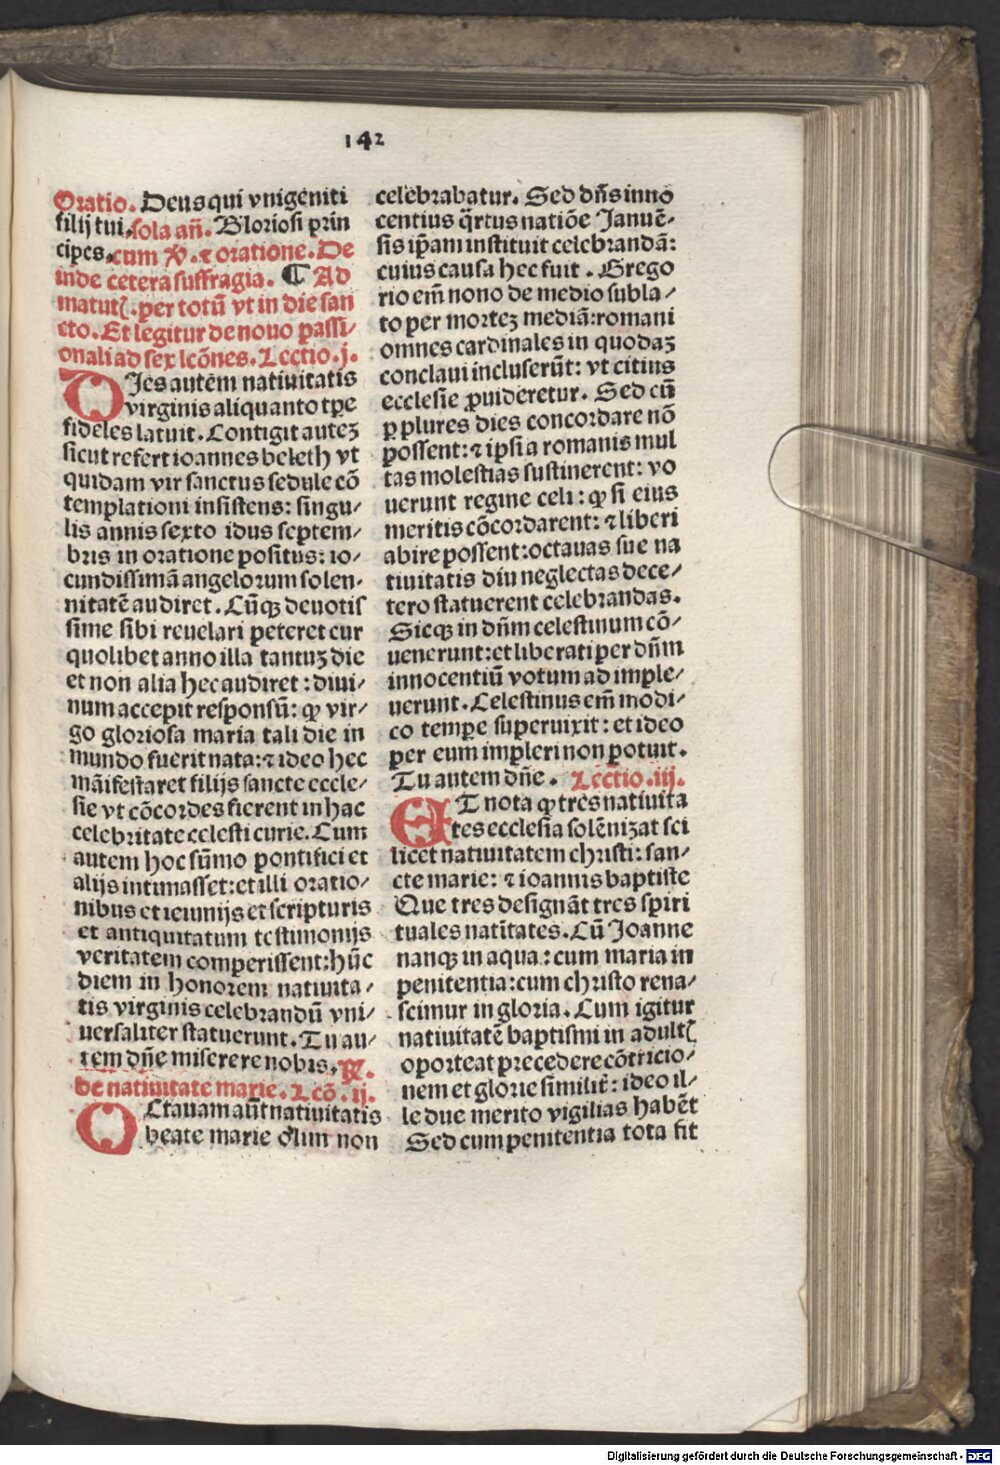 142
Oratio. Deus qui vnigeniti
filij tui. sola añ. Gloriosi prin
cipes. cum ℣. ⁊ oratione. De
inde cetera suffragia. ¶ Ad
matutꝭ. per totū vt in die san
cto. Et legitur de nouo passi⸗
onali ad sex lcōnes. Lectio .j.
DIes autem natiuitatis
virginis aliquanto tꝑe
fideles latuit. Contigit auteꝫ
sicut refert ioannes beleth vt
quidam vir sanctus sedule cō
templationi insistens: singu⸗
lis annis sexto idus septem⸗
bris in oratione positus: io⸗
cundissimā angelorum solen⸗
nitatē audiret. Cūqꝫ deuotis
sime sibi reuelari peteret cur
quolibet anno illa tantuꝫ die
et non alia hec audiret: diui⸗
num accepit responsū: ꝙ vir⸗
go gloriosa maria tali die in
mundo fuerit nata: ⁊ ideo hec
māifestaret filijs sancte eccle⸗
sie vt cōcordes fierent in hac
celebritate celesti curie. Cum
autem hoc sūmo pontifici et
alijs intimasset: et illi oratio⸗
nibus et ieiunijs et scripturis
et antiquitatum testimonijs
veritatem comperissent: hūc
diem in honorem natiuita⸗
tis virginis celebrandū vni⸗
uersaliter statuerunt. Tu au⸗
tem dñe miserere nobis. ℟.
de natiuitate marie. Lcō. ij.
OCtauam aūt natiuitatis
beate marie olim non
celebrabatur. Sed dñs inno
centius q̄rtus natiōe Januē⸗
sis ip̄am instituit celebrandā:
cuius causa hec fuit. Grego
rio em̄ nono de medio subla⸗
to per morteꝫ mediā: romani
omnes cardinales in quodaꝫ
conclaui incluserūt: vt citius
ecclesie ꝓuideretur. Sed cū
ꝑ plures dies concordare nō
possent: ⁊ ipsi a romanis mul
tas molestias sustinerent: vo
uerunt regine celi: ꝙ si eius
meritis cōcordarent: ⁊ liberi
abire possent: octauas sue na
tiuitatis diu neglectas dece⸗
tero statuerent celebrandas.
Sicqꝫ in dñm celestinum cō⸗
uenerunt: et liberati per dñm
innocentiū votum ad imple⸗
uerunt. Celestinus em̄ modi⸗
co tempe superuixit: et ideo
per eum impleri non potuit.
Tu autem dñe. Lectio .iij.
ET nota ꝙ tres natiuita
tes ecclesia solēnizat sci
licet natiuitatem christi: san⸗
cte marie: ⁊ ioannis baptiste
Que tres designāt tres spiri
tuales natītates. Cū Joanne
nanqꝫ in aqua: cum maria in
penitentia: cum christo rena⸗
scimur in gloria. Cum igitur
natiuitatē baptismi in adultꝭ
oporteat precedere cōtricio⸗
nem et glorie similiꝉ: ideo il⸗
le due merito vigilias habēt
Sed cum penitentia tota sit
Digitalisierung gefördert durch die Deutsche Forschungsgemeinschaft - DFG